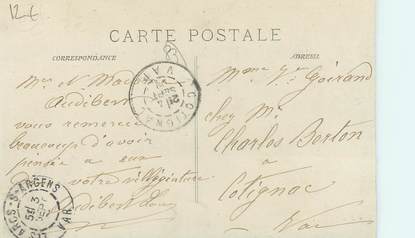 12 €
CARTE POSTALE
CORRESPONDANCE
ADRESSE
Mr et Mme
Audibert
vous remercie
beaucoup d'avoir
pensée a eux
votre villégiature
Audibert
Mme Vve Guérand
chez Mr
Charles Berton
a
Cotignac
Var
COTIGNAC
VAR
SEPT
ARCS-S-ARGENS
VAR
SEPT